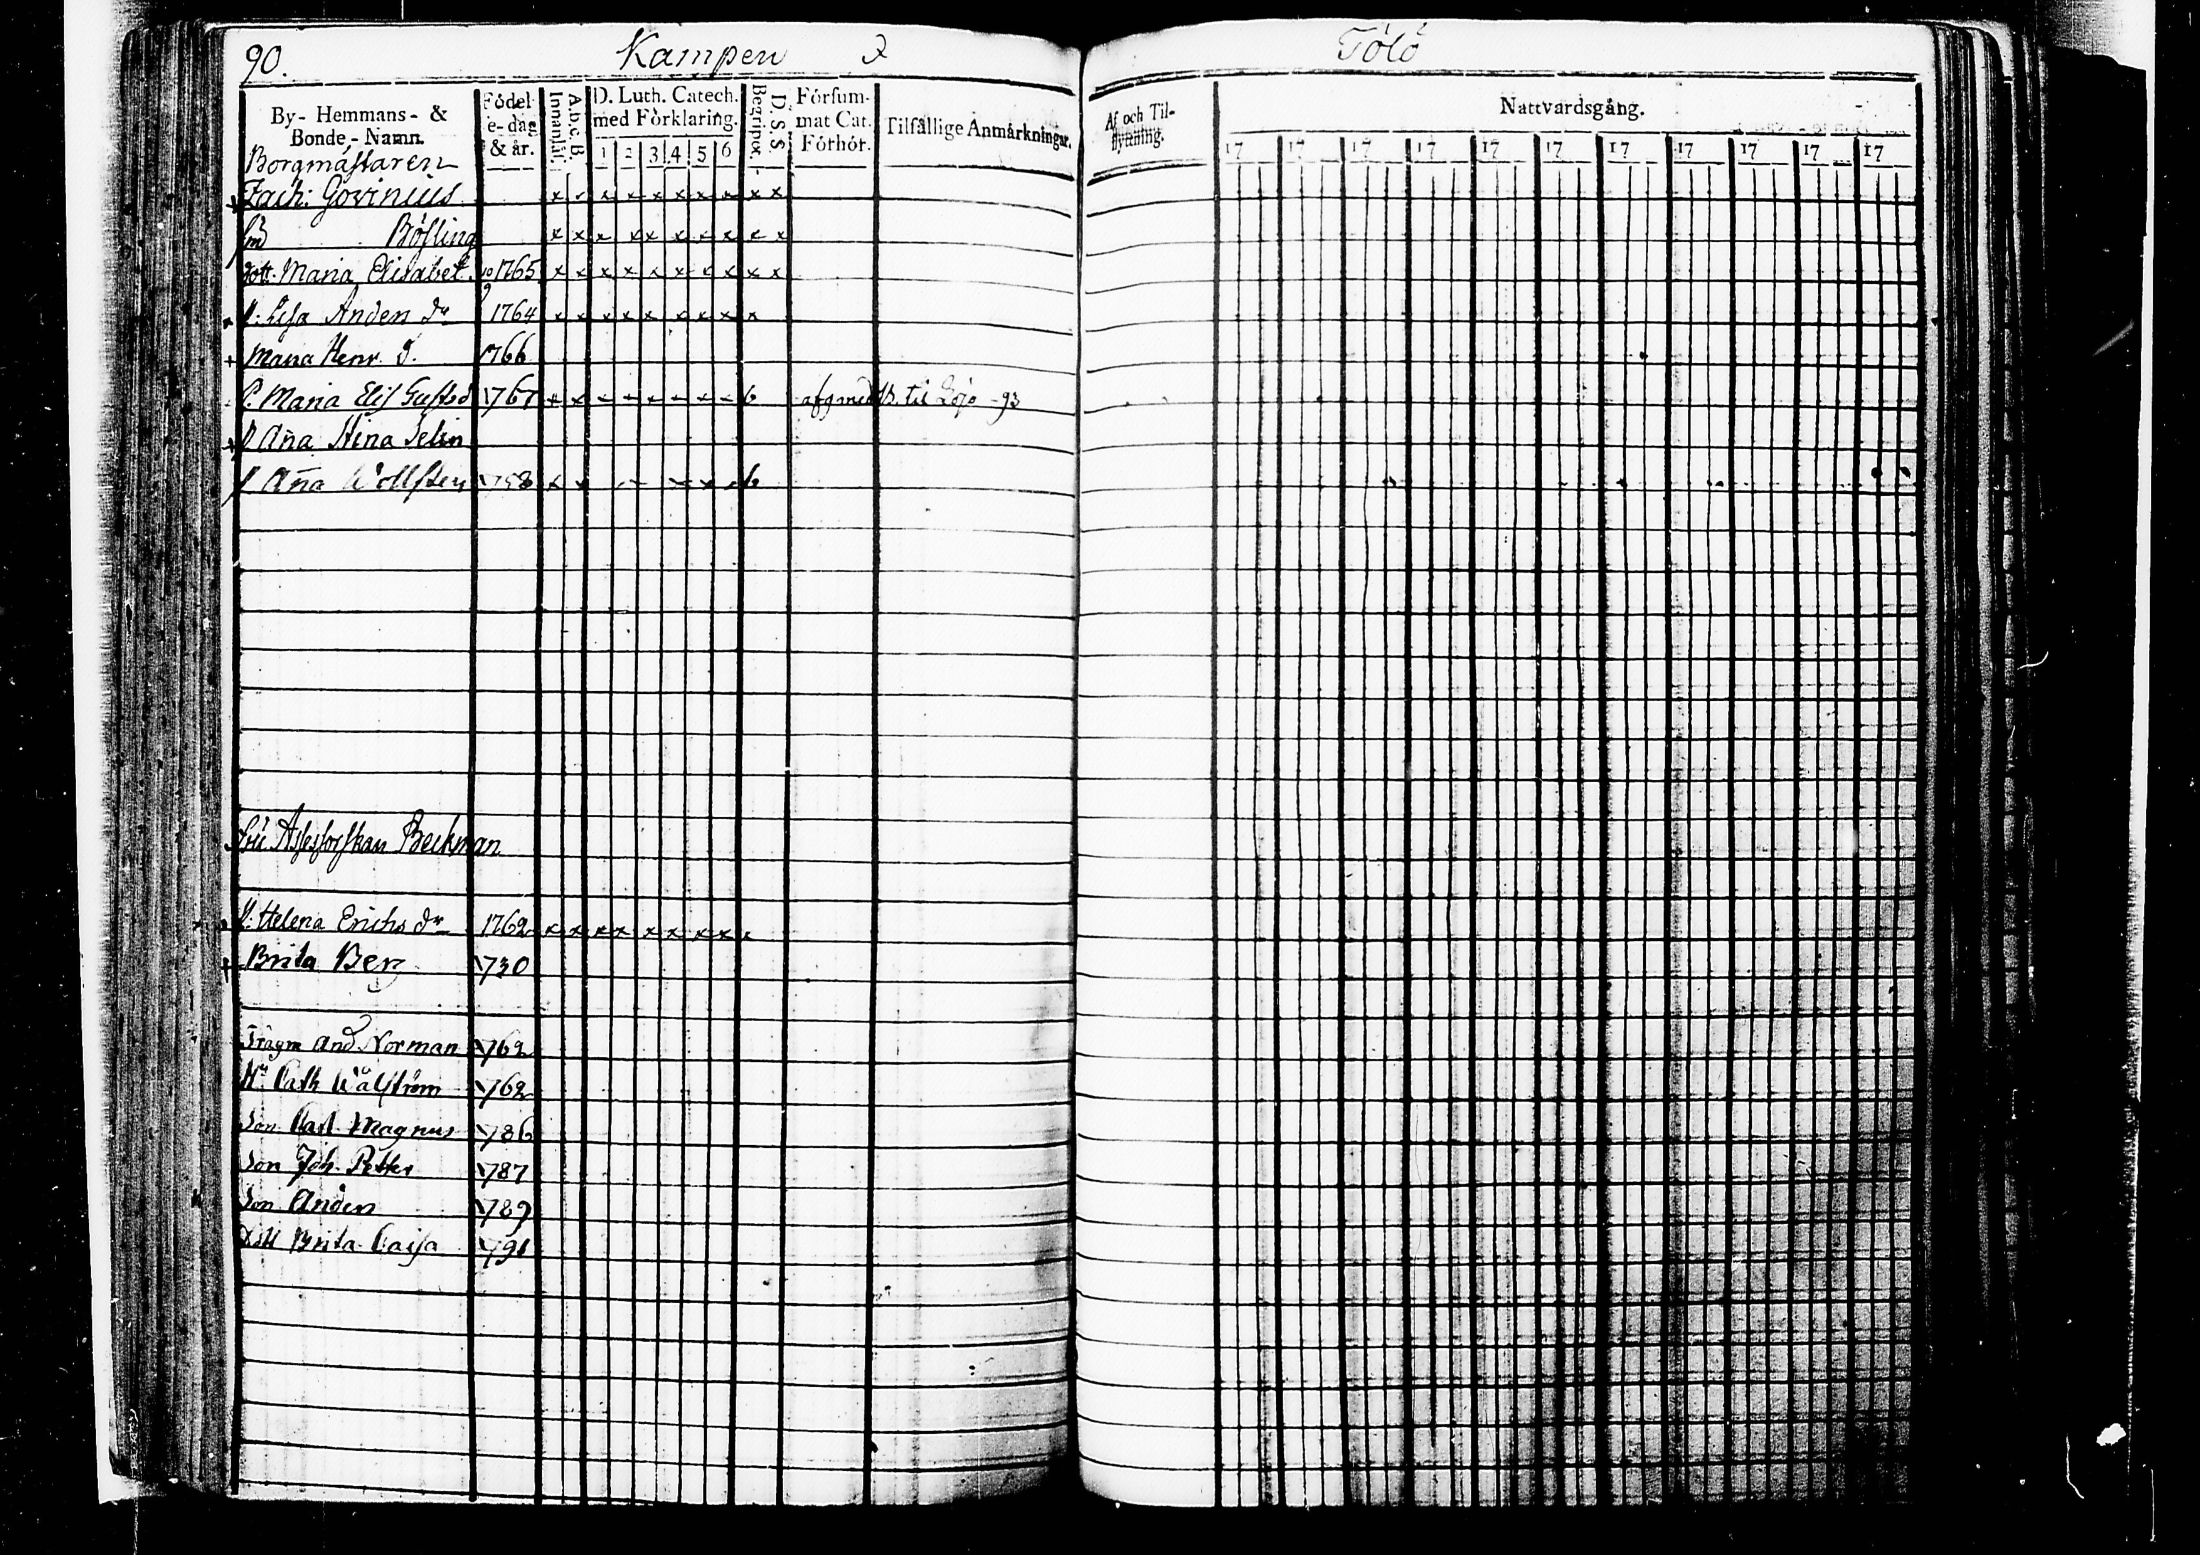 90. Kampen
Tölö
By- Hemmans- & Bonde-Namn.
Födel-e-dag & år.
Innanläs.
A.b.c.B.
D. Luth. Catech. med Förklaring.
1 2 3 4 5 6
Begripet.
D. S. S.
Försum-mat Cat. Förhör.
Tilfällige Anmärkningar.
Af och Til-flyttning.
Nattvardsgång.
17 17 17 17 17 17 17 17 17 17 17
Borgmästaren
Zach: Govinius x x x x x x x x x
Bösling x x x x x x x x x x
dott. Maria Elisabet 1765 x x x x x x x x x x
Lisa Anders dr 1764 x x x x x x x x x
Maria Henr. d. 1766
P. Maria Elis Gustsd 1767 x x 6 afg med B. til Lojo -93
Ana Stina Selin
Ana Wollsten 1758 x x 6
Fru Assessorskan Beckman
P. Helena Erichs dr 1762 x x x x x x x x
Brita Berg 1730
And Norman 1762
Hu Cath Wålström 1762
Son Carl Magnus 1786
Son Joh. Petter 1787
Son Anders 1789
Dott Brita Caisa 1791